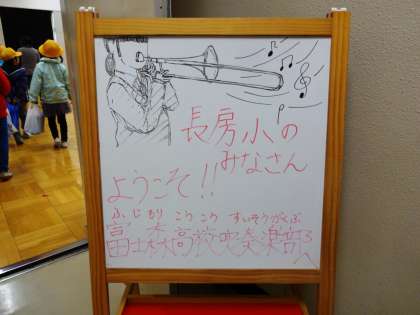 長房小の
みなさん
ようこそ!!
ふじもり こうこう すいそうがくぶ
富士森高校吹奏楽部
へ